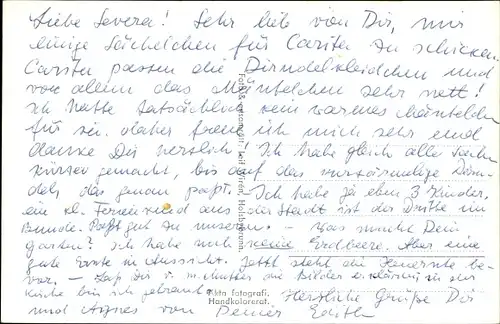 Liebe Severa! Sehr lieb von Dir, mir
einige Sächelchen für Carita zu schicken.
Carita passen die Dirndelkleidchen und
vor allem das Mäntelchen sehr nett!
Ich hatte tatsächlich kein warmes Mäntelchen
für sie, daher freue ich mich sehr und
danke Dir herzlich. Ich habe gleich alle Sachen
kürzer gemacht, bis auf das
das genau paßt. Ich habe ja eben 3 Kinder,
ein kl. Ferienkind aus der Stadt ist der Dritte im
Bunde. Paßt gut zu unseren. - Was macht Dein
Garten? Ich habe noch keine Erdbeere. Aber eine
gute Ernte in Aussicht. Jetzt steht die Heuernte be-
vor. - die Bilder
Herzliche Grüße Dir
und Agnes von Deiner Edith
Ekta fotografi.
Handkolorerat.